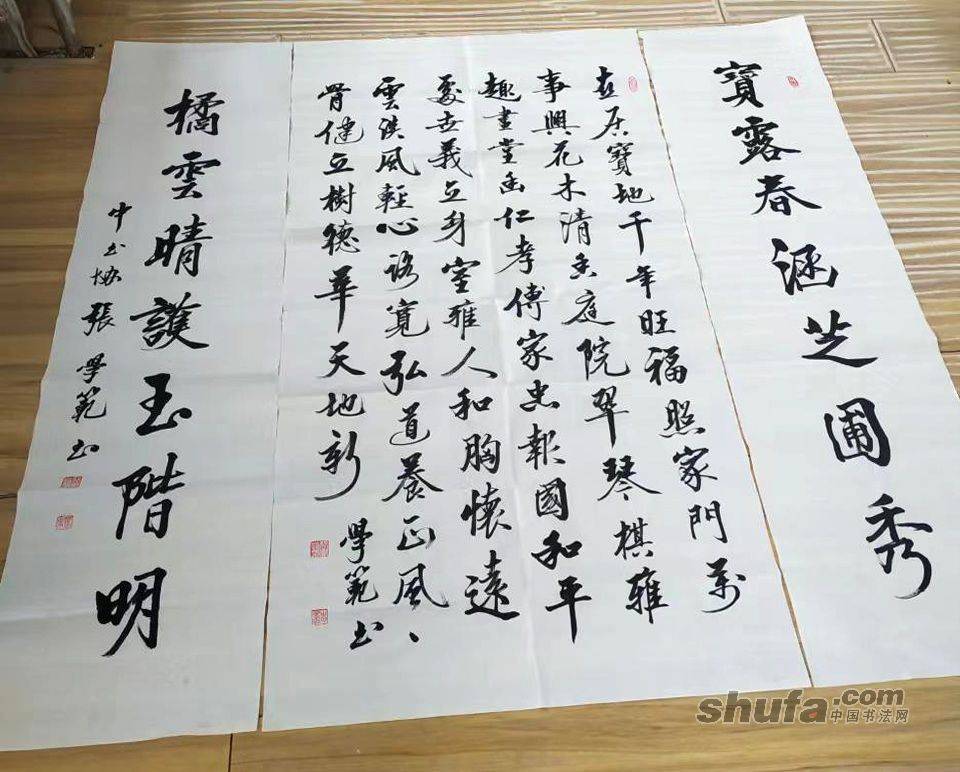 寶露春涵芝圃秀
吉居寶地千年旺福照家門萬
事興花木清香庭院翠琴棋雅
趣畫堂香仁孝傳家忠報國和平
處世義立身室雅人和胸懷遠
雲淡風輕心路寬弘道養正風、
骨健立樹德華天地新
學範书
橘雲晴護玉階明
中书协張學範书
shufa.com
中国书法网